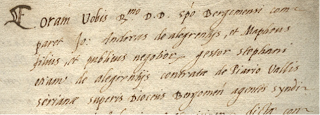 Coram Vobis R.mo D. D. Epo Bergomense com
paret Jo: Andreas de alegrenijs, et Matheus
filius, et publicus negotior. gestor stephani
etiam de alegrenijs contrate de Piario Vallis
serianæ superis Diocesis Bergomen agentis syndi
dicta con